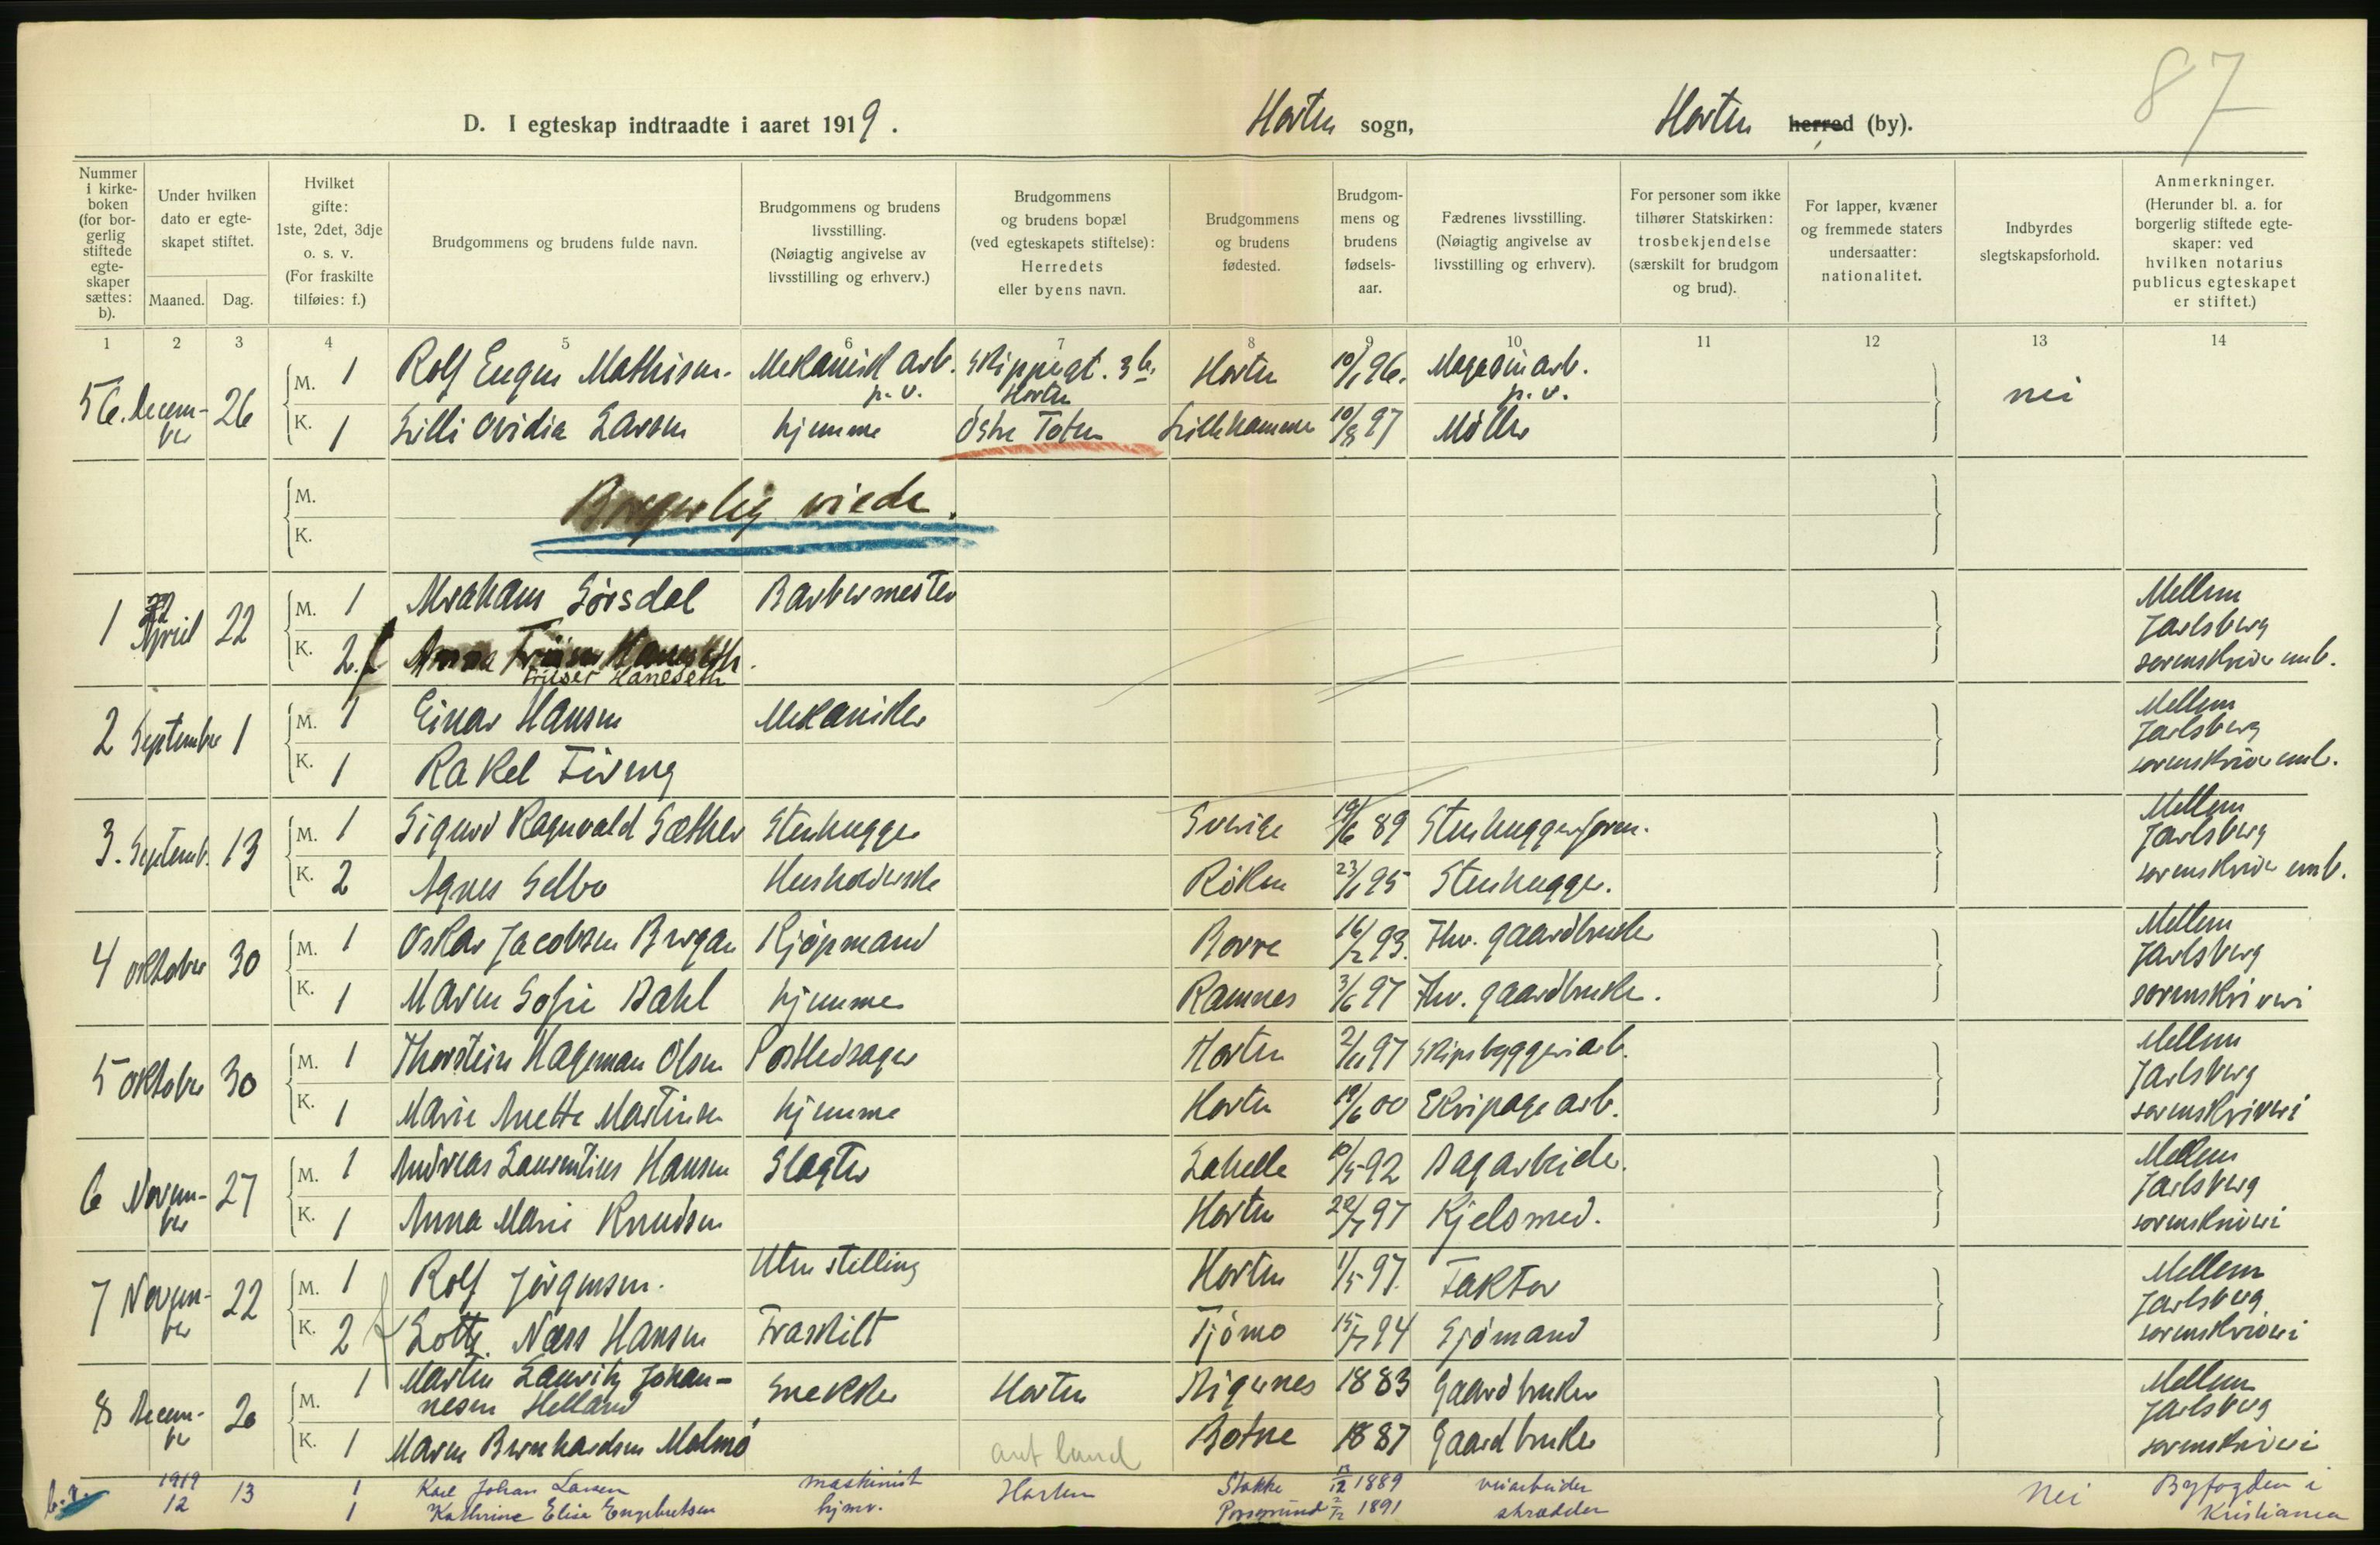 87
D. I egteskap indtraadte i aaret 1919. Horten sogn, Horten herred (by).
Nummer i kirkeboken (for borgerlig stiftede egteskaper sættes: b).
Under hvilken dato er egteskapet stiftet.
Maaned. Dag.
Hvilket gifte: 1ste, 2det, 3dje o. s. v. (For fraskilte tilføies: f.)
Brudgommens og brudens fulde navn.
Brudgommens og brudens livsstilling. (Nøiagtig angivelse av livsstilling og erhverv.)
Brudgommens og brudens bopæl (ved egteskapets stiftelse): Herredets eller byens navn.
Brudgommens og brudens fødested.
Brudgommens og brudens fødselsaar.
Fædrenes livsstilling. (Nøiagtig angivelse av livsstilling og erhverv).
For personer som ikke tilhører Statskirken: trosbekjendelse (særskilt for brudgom og brud).
For lapper, kvæner og fremmede staters undersaatter: nationalitet.
Indbyrdes slegtskapsforhold.
Anmerkninger. (Herunder bl. a. for borgerlig stiftede egteskaper: ved hvilken notarius publicus egteskapet er stiftet.)
1 2 3 4 5 6 7 8 9 10 11 12 13 14
56. Decem-ber 26 M. 1 Rolf Eugen Mathisen. Mekanisk arb. p.v. Skippergt. 3b, Horten Horten 10/1 96. Magasinarb. p.v. nei
K. 1 Lilli Ovidia Larsen hjemme Østre Toten Lillehammer 10/8 97 Møller
M.
K.
Borgerlig viede.
1 April 22 M. 1 Abraham Sørsdal Barbermester Mellem Jarlsberg sorenskriveremb.
K. 2.f Anna Friiser Haneseth.
Friiser Haneseth
2 September 1 M. 1 Einar Hansen Mekaniker Mellem Jarlsberg sorenskriveremb.
K. 1 Rakel Firing
3. Septemb. 13 M. 1 Sigurd Ragnvald Sæther Stenhugger Sverige 19/6 89 Stenhuggerform. Mellem Jarlsberg sorenskriver emb.
K. 2 Agnes Selbo Husholderske Røken 23/1 95 Stenhugger.
4 oktober 30 M. 1 Oskar Jacobsen Bergan Kjøpmand Borre 16/2 93. Fhv. gaardbruker Mellem Jarlsberg sorenskriveri
K. 1 Maren Sofie Dahl hjemme Ramnes 3/6 97 Fhv. gaardbruker.
5 oktober 30 M. 1 Thorstein Hageman Olsen Postledsager Horten 2/11 97 Skipsbyggeriarb. Mellem Jarlsberg sorenskriveri
K. 1 Marie Anette Martinsen hjemme Horten 19/6 00 Ekvipagearb.
6 Novem-ber 27 M. 1 Andreas Laurentius Hansen Slagter Lahelle 10/5 92 Dagarbeider. Mellem Jarlsberg sorenskriveri
K. 1 Anna Marie Knudsen Horten 22/7 97 Kjelsmed.
7 Novem-ber 22 M. 1 Rolf Jørgensen. Uten stilling Horten 1/5 97. Faktor Mellem Jarlsberg sorenskriveri
K. 2 f Lotte Næss Hansen Fraskilt Tjømo 15/7 94 Sjømand
8 Decem-ber 20 M. 1 Martin Lauritz Johan-nesen Helland Snekker Horten Digernes 1883 Gaardbruker Mellem Jarlsberg sorenskriveri
K. 1 Maren Bernhardsen Malmø ant land Botne 1887 Gaardbruker
b.v. 1919 12 13 1 Karl Johan Larsen maskinist Horten Stokke 13/12 1889 veiarbeider nei Byfogden i Kristiania
1 Kathrine Elise Engebretsen hjmv. Porsgrund 2/12 1891 skrædder